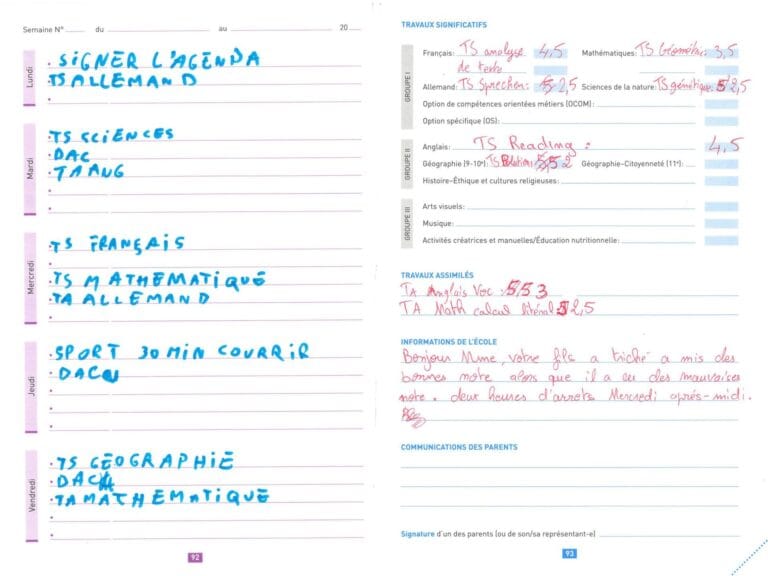 Semaine N° du au 20
Lundi
. SIGNER L'AGENDA
TS ALLEMAND
Mardi
TS SCIENCES
DAC
TA ANG
Mercredi
TS FRANÇAIS
TS MATHEMATIQUE
TA ALLEMAND
Jeudi
SPORT 30 MIN COURRIR
DAC
Vendredi
TS GEOGRAPHIE
DAC
TA MATHEMATIQUE
92
TRAVAUX SIGNIFICATIFS
GROUPE I
Français: TS analyse de texte 4,5
Mathématiques: TS Géométrie: 3,5
Allemand: TS Sprechen: 2,5
Sciences de la nature: TS génétique: 2,5
Option de compétences orientées métiers (OCOM):
Option spécifique (OS):
GROUPE II
Anglais: TS Reading : 4,5
Géographie (9-10e): TS 2
Géographie-Citoyenneté (11e):
Histoire-Éthique et cultures religieuses:
GROUPE III
Arts visuels:
Musique:
Activités créatrices et manuelles/Éducation nutritionnelle:
TRAVAUX ASSIMILÉS
TA Anglais Voc : 5,5 3
TA Math calcul litéral 2,5
INFORMATIONS DE L'ÉCOLE
Bonjour Mme, votre fils a triché a mis des
bonnes note alors que il a eu des mauvaises
note. deux heures d'arrets Mercredi après-midi.
COMMUNICATIONS DES PARENTS
Signature d'un des parents (ou de son/sa représentant-e)
93